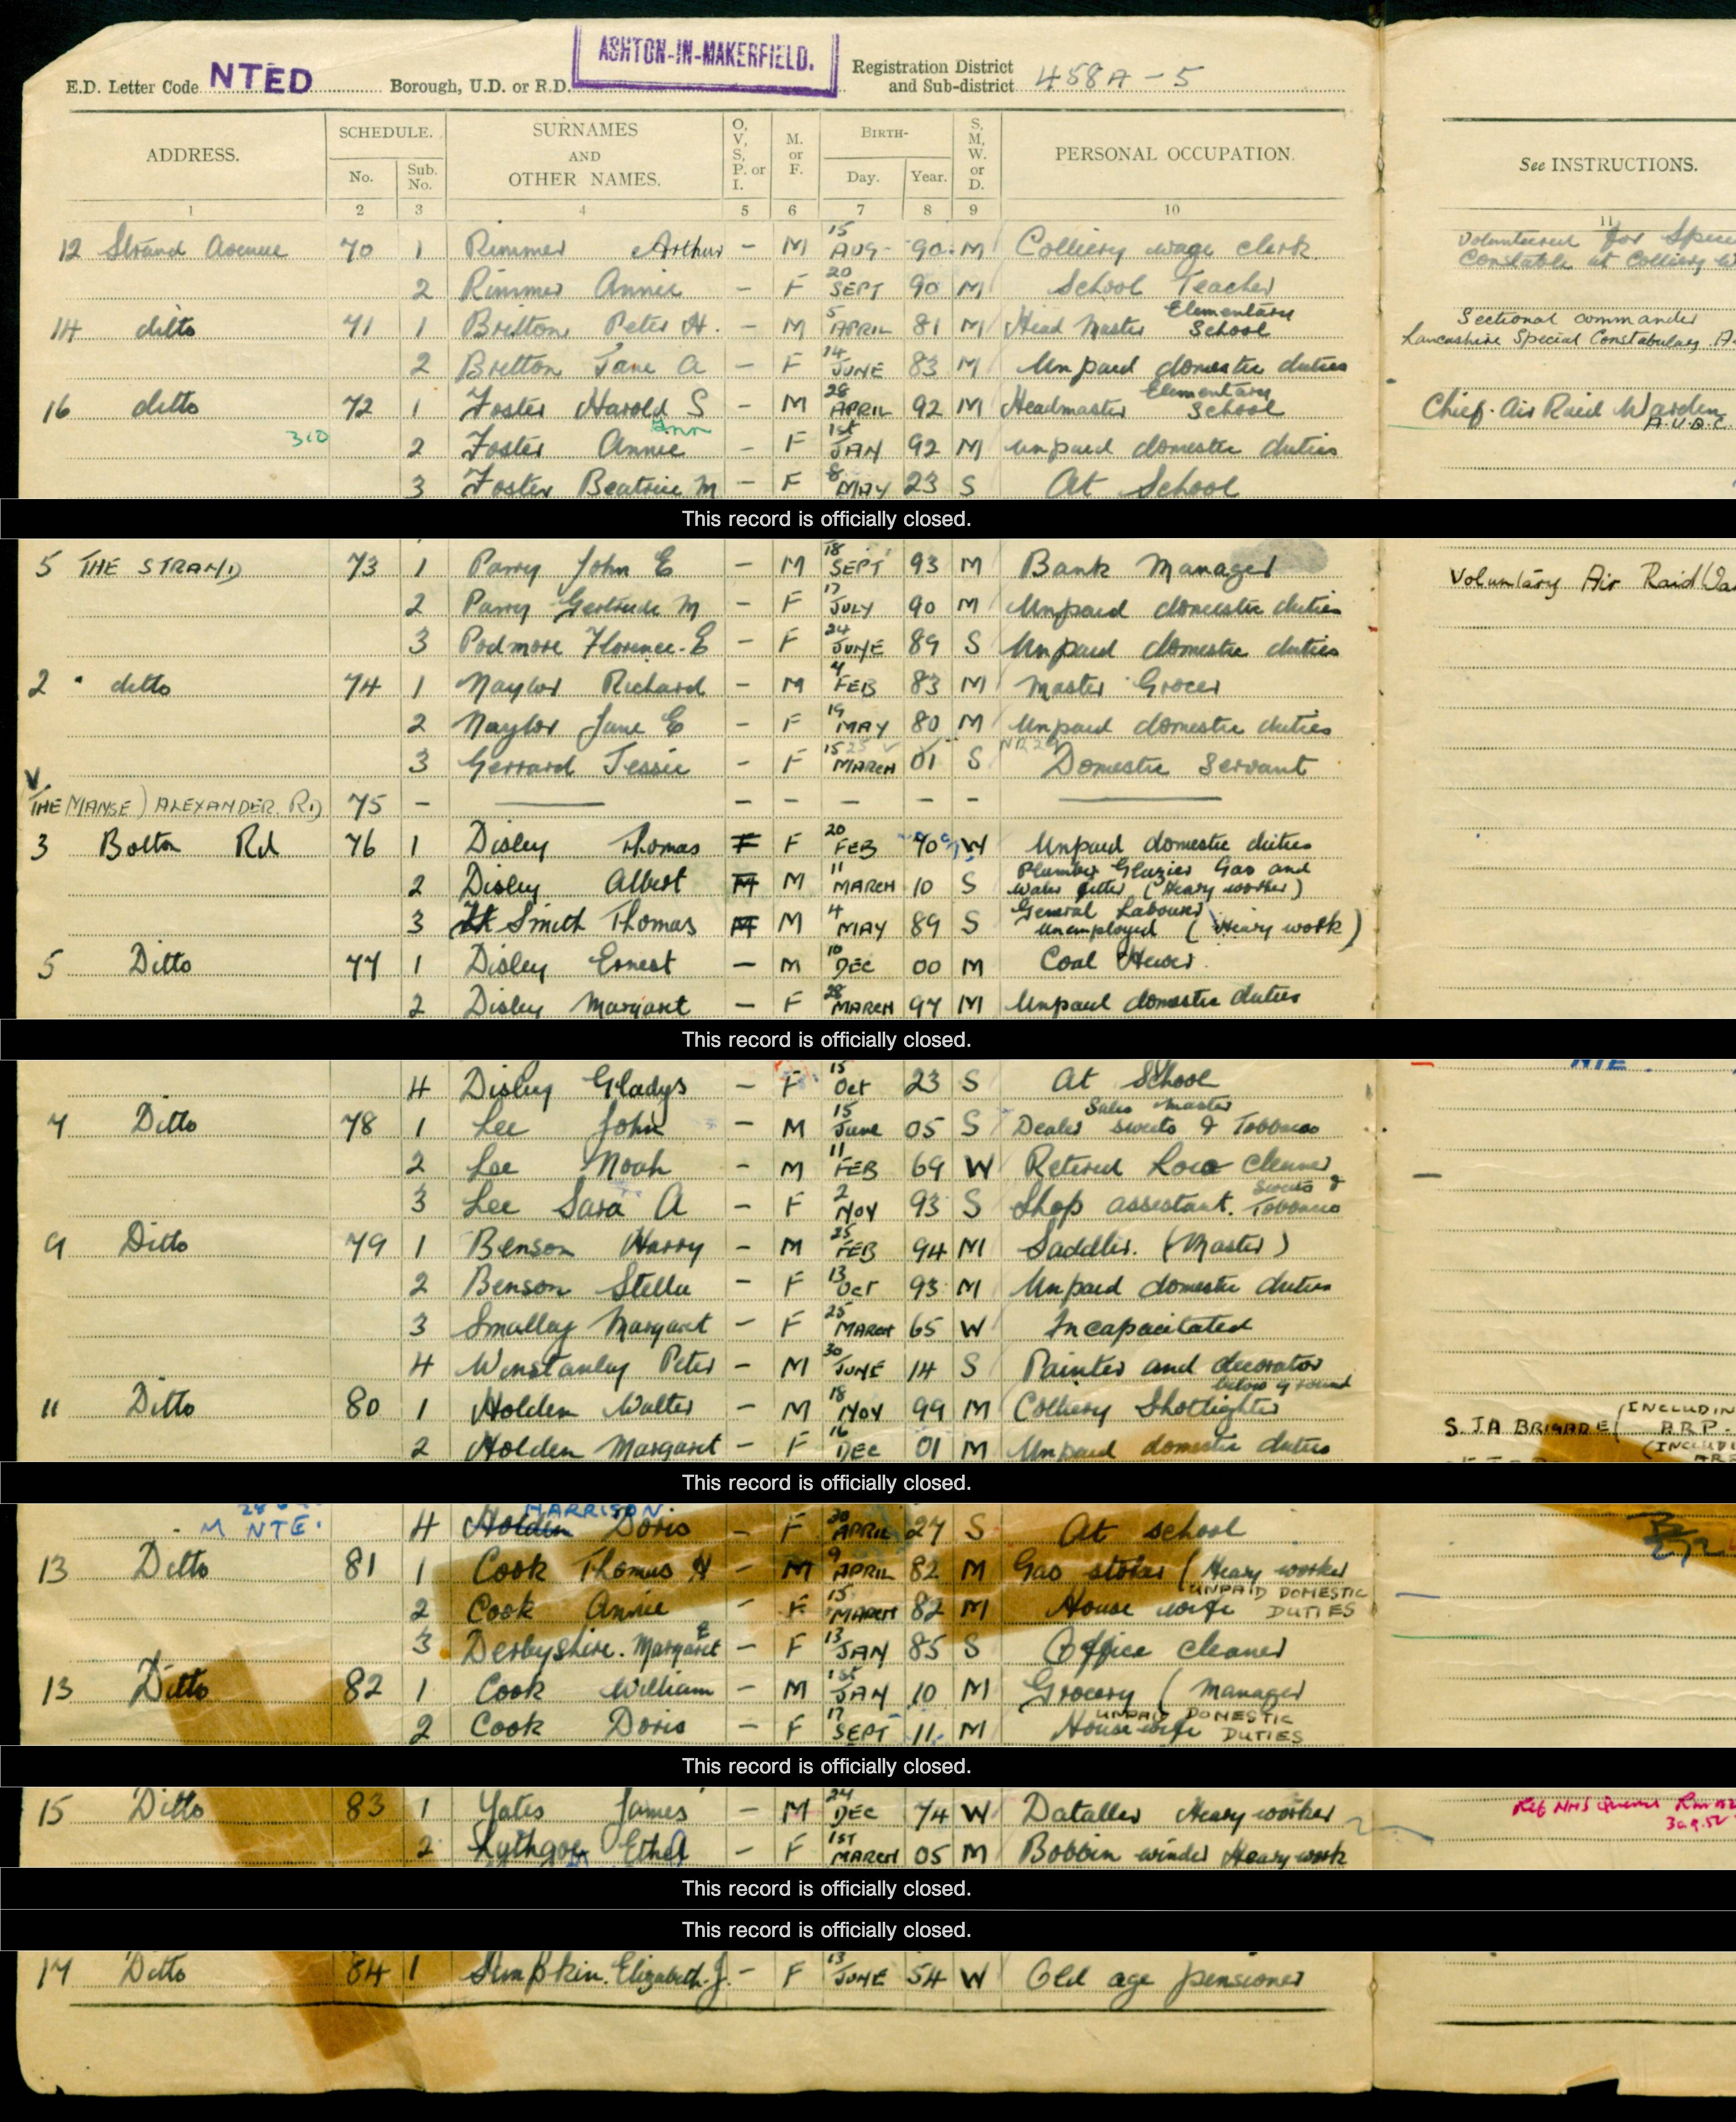 ASHTON-IN-MAKERFIELD.
E.D. Letter Code NTED Borough, U.D. or R.D. Registration District and Sub-district 458A-5
ADDRESS. SCHEDULE. No. Sub. No. SURNAMES AND OTHER NAMES. O, V, S, P. or I. M. or F. BIRTH- Day. Year. S, M, W. or D. PERSONAL OCCUPATION. See INSTRUCTIONS.
1 2 3 4 5 6 7 8 9 10 11
12 Strand Avenue 70 1 Rimmer Arthur - M 15 AUG 90 M Colliery wage clerk. Volunteered for Constable at Colliery
2 Rimmer Annie - F 20 SEPT 90 M School Teacher
14 ditto 71 1 Britton Peter H. - M 5 APRIL 81 M Head Master Elementary School Sectional commander Lancashire Special Constabulary.
2 Britton Jane A - F 14 JUNE 83 M Unpaid domestic duties
16 ditto 72 1 Foster Harold S - M 28 APRIL 92 M Headmaster Elementary School Chief Air Raid Warden A.U.D.C.
310 2 Foster Annie Ann - F 1st JAN 92 M Unpaid domestic duties
3 Foster Beatrice M - F 8 MAY 23 S At School
This record is officially closed.
5 THE STRAND 73 1 Parry John E - M 18 SEPT 93 M Bank Manager Voluntary Air Raid
2 Parry Gertrude M - F 17 JULY 90 M Unpaid domestic duties
3 Podmore Florence. E - F 24 JUNE 89 S Unpaid domestic duties
2 ditto 74 1 Naylor Richard - M 4 FEB 83 M Master Grocer
2 Naylor Jane E - F 19 MAY 80 M Unpaid domestic duties
3 Gerrard Jessie - F 15 MARCH 01 S Domestic Servant
V
THE MANSE) ALEXANDER. RD 75 - - - - - -
3 Bolton Rd 76 1 Disley Thomas F F 20 FEB 70 W Unpaid domestic duties
2 Disley Albert M M 11 MARCH 10 S Plumber Glazier Gas and Water fitter (Heavy worker)
3 Smith Thomas M M 4 MAY 89 S General Labourer Unemployed (Heavy work)
5 Ditto 77 1 Disley Ernest - M 10 DEC 00 M Coal Hewer.
2 Disley Margaret - F 28 MARCH 97 M Unpaid domestic duties
This record is officially closed.
4 Disley Gladys - F 15 Oct 23 S At School NTE
7 Ditto 78 1 Lee John - M 15 June 05 S Sales Master Dealer sweets & Tobbacco
2 Lee Noah - M 11 FEB 69 W Retired Loco cleaner
3 Lee Sara A - F 2 NOV 93 S Shop assistant. Sweets & Tobbacco
9 Ditto 79 1 Benson Harry - M 25 FEB 94 M Saddler. (Master)
2 Benson Stella - F 13 Oct 93 M Unpaid domestic duties
3 Smalley Margaret - F 25 MARCH 65 W Incapacitated
4 Winstanley Peter - M 30 JUNE 14 S Painter and decorator
11 Ditto 80 1 Holden Walter - M 18 NOV 99 M Colliery Shotlighter below ground S. J A BRIGADE (INCLUDIN A.R.P.
2 Holden Margaret - F 16 DEC 01 M Unpaid domestic duties
This record is officially closed.
M NTE. 4 Holden HARRISON Doris - F 30 APRIL 27 S At school
13 Ditto 81 1 Cook Thomas H - M 9 APRIL 82 M Gas stoker (Heavy worker
2 Cook Annie - F 15 MARCH 82 M House wife UNPAID DOMESTIC DUTIES
3 Derbyshire. Margaret E - F 13 JAN 85 S Office cleaner
13 Ditto 82 1 Cook William - M 1st JAN 10 M Grocery (Manager
2 Cook Doris - F 17 SEPT 11 M House wife UNPAID DOMESTIC DUTIES
This record is officially closed.
15 Ditto 83 1 Yates James - M 24 DEC 74 W Dataller Heavy worker Ref NHS
2 Lythgoe Ethel - F 1ST MARCH 05 M Bobbin winder Heavy work
This record is officially closed.
This record is officially closed.
17 Ditto 84 1 Simpkin. Elizabeth. J. - F 13 JUNE 54 W Old age pensioner